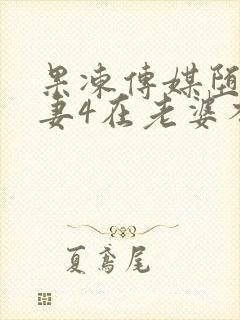 果凍傳媒堕
妻4在老婆
夏鸢尾